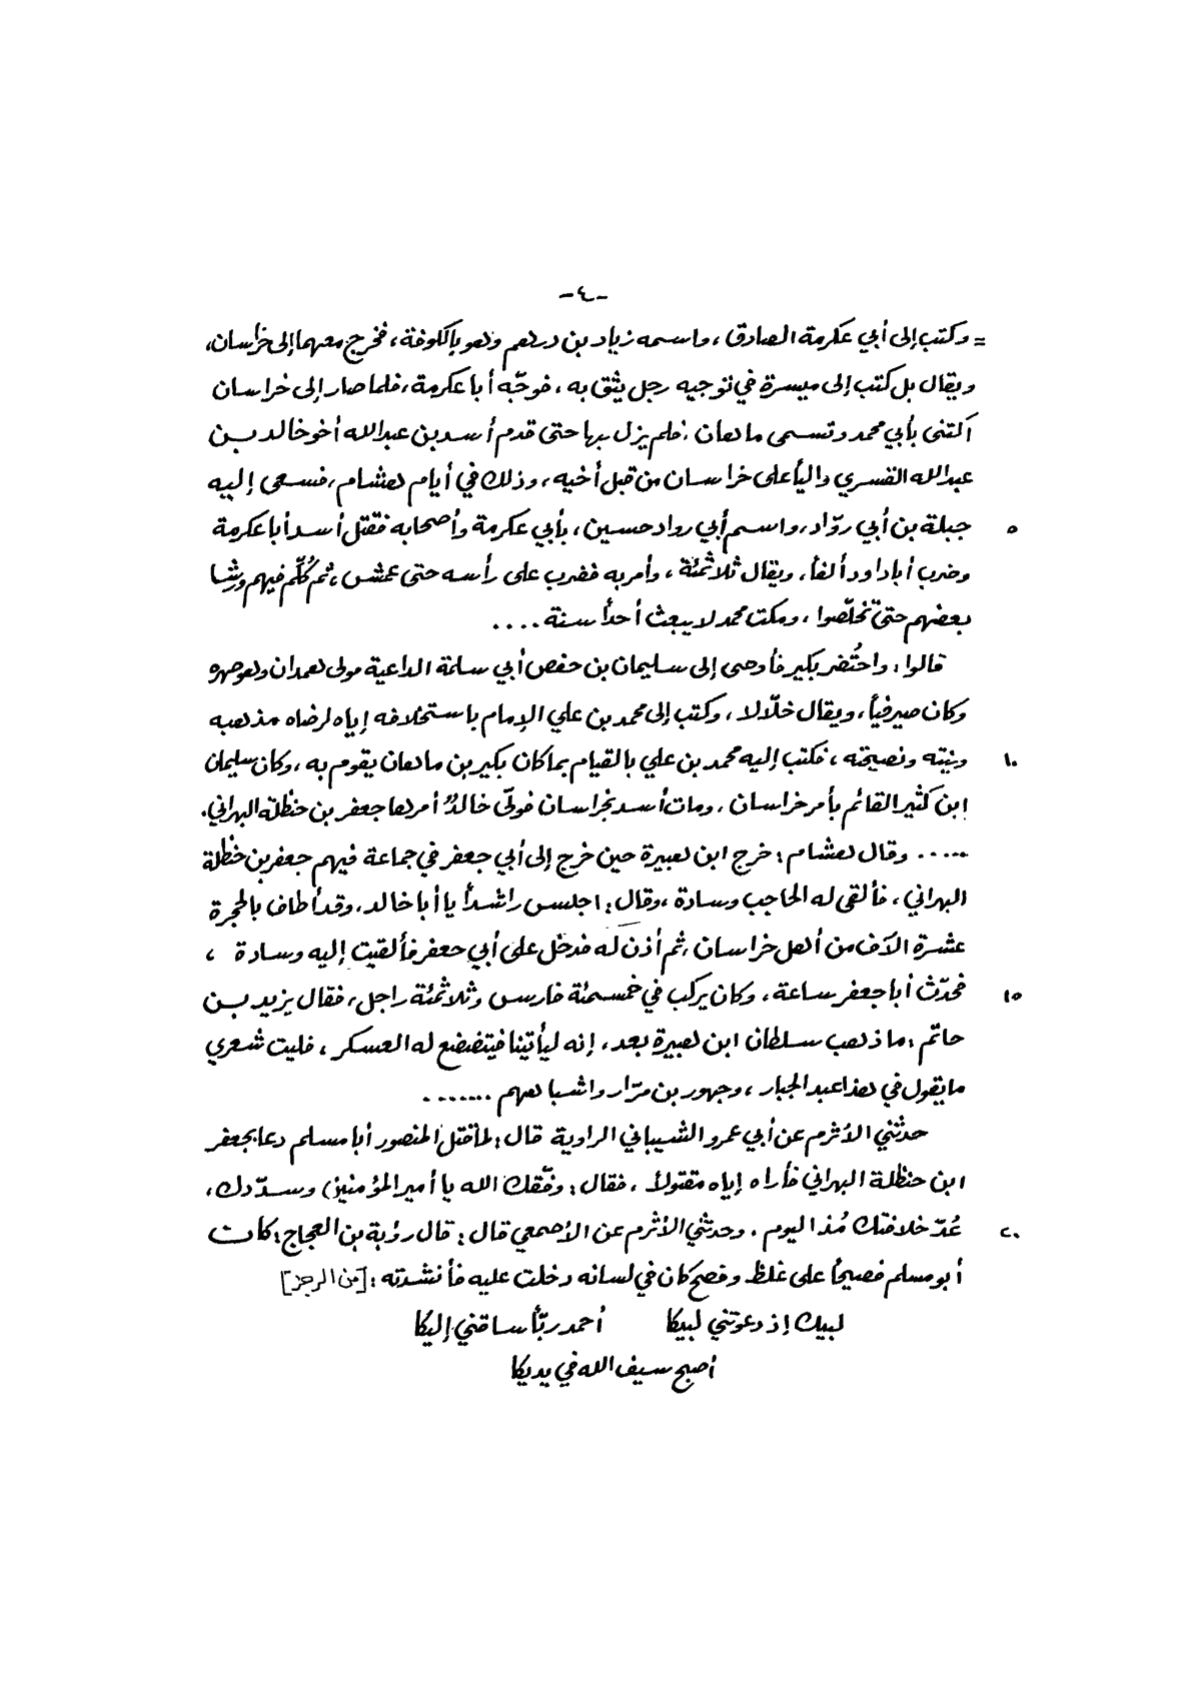 -٤-
= وكتب إلى أبي عكرمة الصادق، واسمه زياد بن درهم وهو بالكوفة، فخرج معهما إلى خراسان،
ويقال بل كتب إلى ميسرة في توجيه رجل يثق به، فوجّه أبا عكرمة، فلما صار إلى خراسان
اكتنى بأبي محمد وتسمى ماهان، فلم يزل بها حتى قدم أسد بن عبدالله أخو خالد بن
عبدالله القسري والياً على خراسان من قبل أخيه، وذلك في أيام هشام، فسعى إليه
٥ جبلة بن أبي روّاد، واسم أبي رواد حسين، بأبي عكرمة وأصحابه فقتل أسد أبا عكرمة
وضرب أبا داود ألفاً، ويقال ثلاثمئة، وأمر به فضرب على رأسه حتى عمش، ثم كُلّم فيهم ورشا
بعضهم حتى تخلّصوا، ومكث محمد لا يبعث أحداً سنة ....
قالوا: واحتُضر بكير فأوصى إلى سليمان بن حفص أبي سلمة الداعية مولى همدان وهو صهره
وكان صيرفياً، ويقال خلّالا، وكتب إلى محمد بن علي الإمام باستخلافه إياه لرضاه مذهبه
١٠ ونيته ونصيحته، فكتب إليه محمد بن علي بالقيام بما كان بكير بن ماهان يقوم به، وكان سليمان
ابن كثير القائم بأمر خراسان، ومات أسد بخراسان فولّى خالدٌ أمرها جعفر بن حنظلة البهراني.
..... وقال هشام: خرج ابن هبيرة حين خرج إلى أبي جعفر في جماعة فيهم جعفر بن حنظلة
البهراني، فألقى له الحاجب وسادة، وقال: اجلس راشداً يا أبا خالد، وقد أطاف بالحجرة
عشرة الآف من أهل خراسان، ثم أذن له فدخل على أبي جعفر فألقيت إليه وسادة ،
١٥ فحدّث أبا جعفر ساعة، وكان يركب في خمسمئة فارس وثلاثمئة راجل، فقال يزيد بن
حاتم: ما ذهب سلطان ابن هبيرة بعد، إنه ليأتينا فيتضعضع له العسكر، فليت شعري
ما يقول في هذا عبد الجبار، وجهور بن مرّار واشباههم ........
حدثني الأثرم عن أبي عمرو الشيباني الراوية قال: لما قتل المنصور أبا مسلم دعا بجعفر
ابن حنظلة البهراني فأراه إياه مقتولاً، فقال: وفّقك الله يا أمير المؤمنين وسدّدك،
٢٠ عُدّ خلافتك مُذ اليوم. وحدثني الأثرم عن الأصمعي قال: قال رؤبة بن العجاج: كان
أبو مسلم فصيحاً على غلظ وفصح كان في لسانه دخلت عليه فأنشدته: [من الرجز]
لبيك إذ دعوتني لبيكا أحمد ربّاً ساقني إليكا
أصبح سيف الله في يديكا